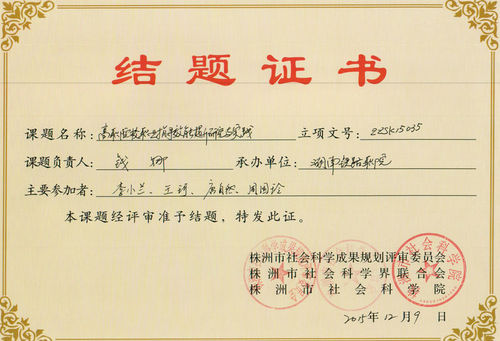 结题证书
课题名称：高职院校职业指导 研究与实践 立项文号：ZZSK15035
课题负责人：钱娜 承办单位：湖南铁路 学院
主要参加者：李小兰、王琦、唐自然、周国玲
本课题经评审准予结题，特发此证。
株洲市社会科学成果规划评审委员会
株洲市社会科学界联合会
株洲市社会科学院
2015年12月9日
株洲市社会科学院